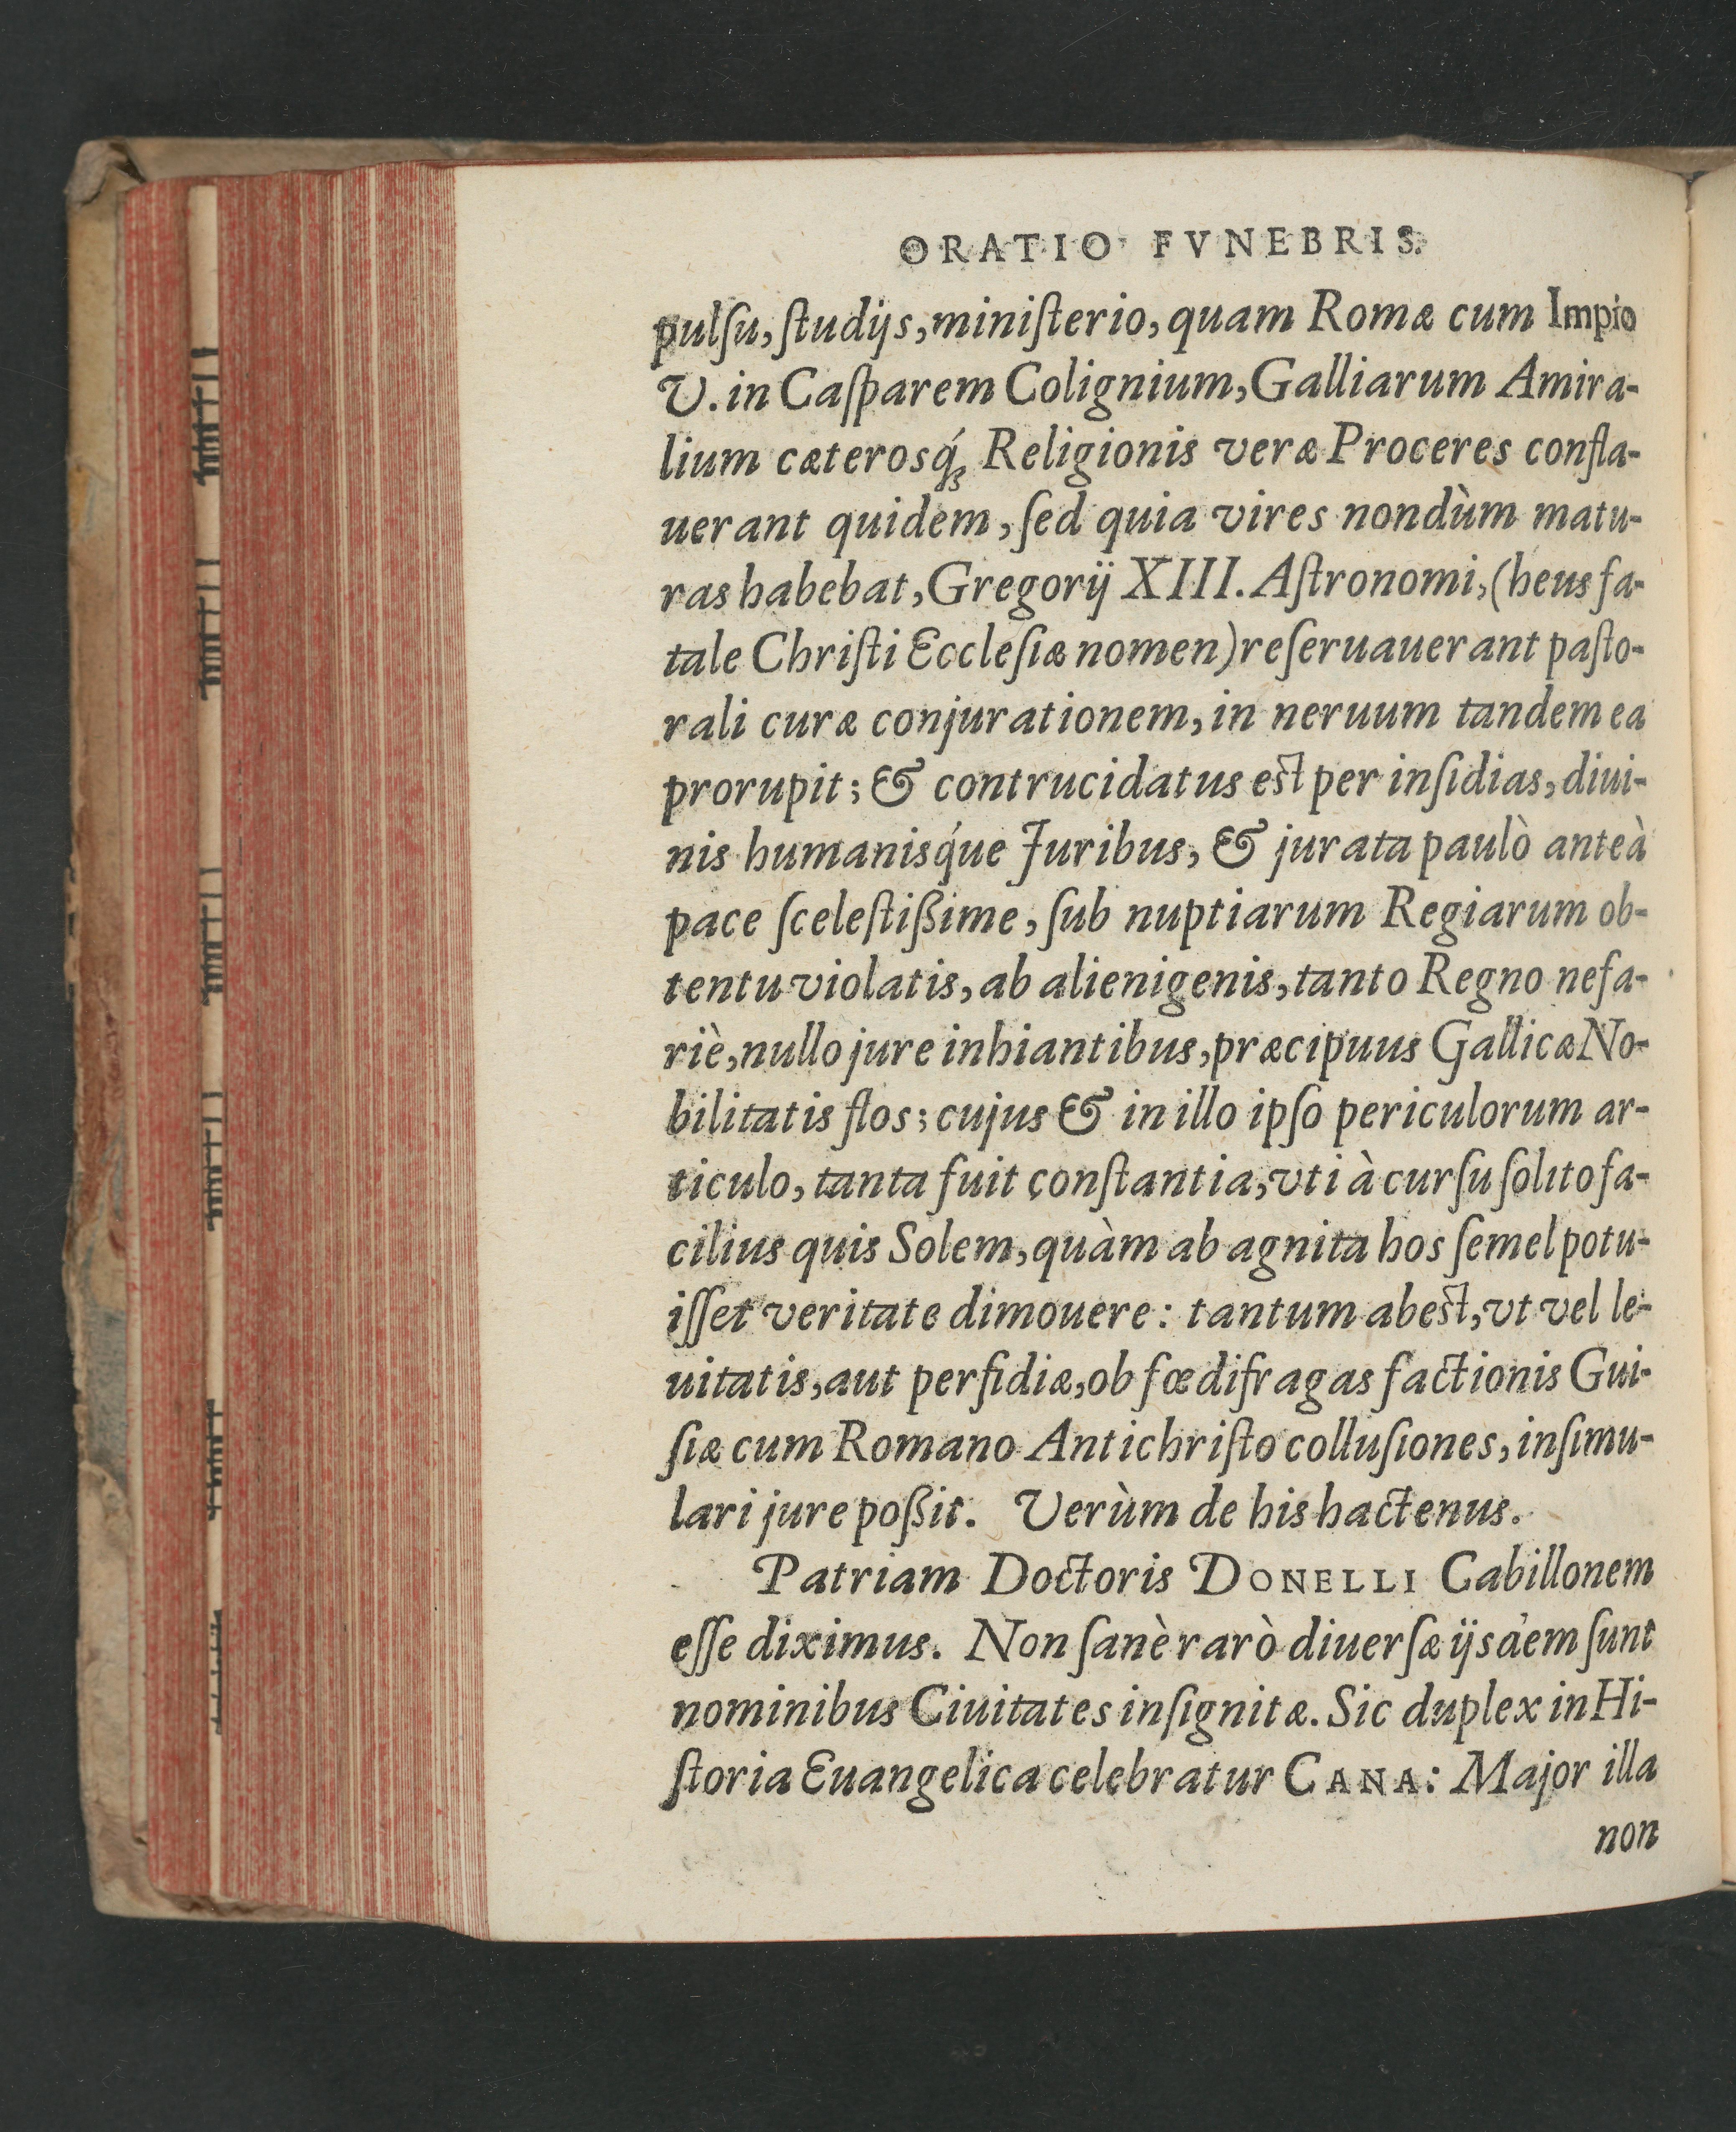 ORATIO FVNEBRIS.
pulſu, ſtudijs, miniſterio, quam Romæ cum Impio
V. in Caſparem Colignium, Galliarum Amira-
lium cæterosq́ꝫ Religionis veræ Proceres confla-
uerant quidem, ſed quia vires nondùm matu-
ras habebat, Gregorij XIII. Aſtronomi, (heus fa-
tale Chriſti Eccleſiæ nomen) reſeruauerant paſto-
rali curæ conjurationem, in neruum tandem ea
prorupit; & contrucidatus est per inſidias, diui-
nis humanisq́ue Juribus, & jurata paulò anteà
pace ſceleſtißime, ſub nuptiarum Regiarum ob-
tentu violatis, ab alienigenis, tanto Regno nefa-
riè, nullo jure inhiantibus, præcipuus Gallicæ No-
bilitatis flos; cujus & in illo ipſo periculorum ar-
ticulo, tanta fuit conſtantia, vti à curſu ſolito fa-
cilius quis Solem, quàm ab agnita hos ſemel potu-
iſſet veritate dimouere: tantum abest, vt vel le-
uitatis, aut perfidiæ, ob fœdifragas factionis Gui-
ſiæ cum Romano Antichriſto colluſiones, inſimu-
lari jure poßit. Verùm de his hactenus.
Patriam Doctoris DONELLI Cabillonem
eſſe diximus. Non ſanè rarò diuerſæ ijsdem ſunt
nominibus Ciuitates inſignitæ. Sic duplex in Hi-
ſtoria Euangelica celebratur CANA: Major illa
non